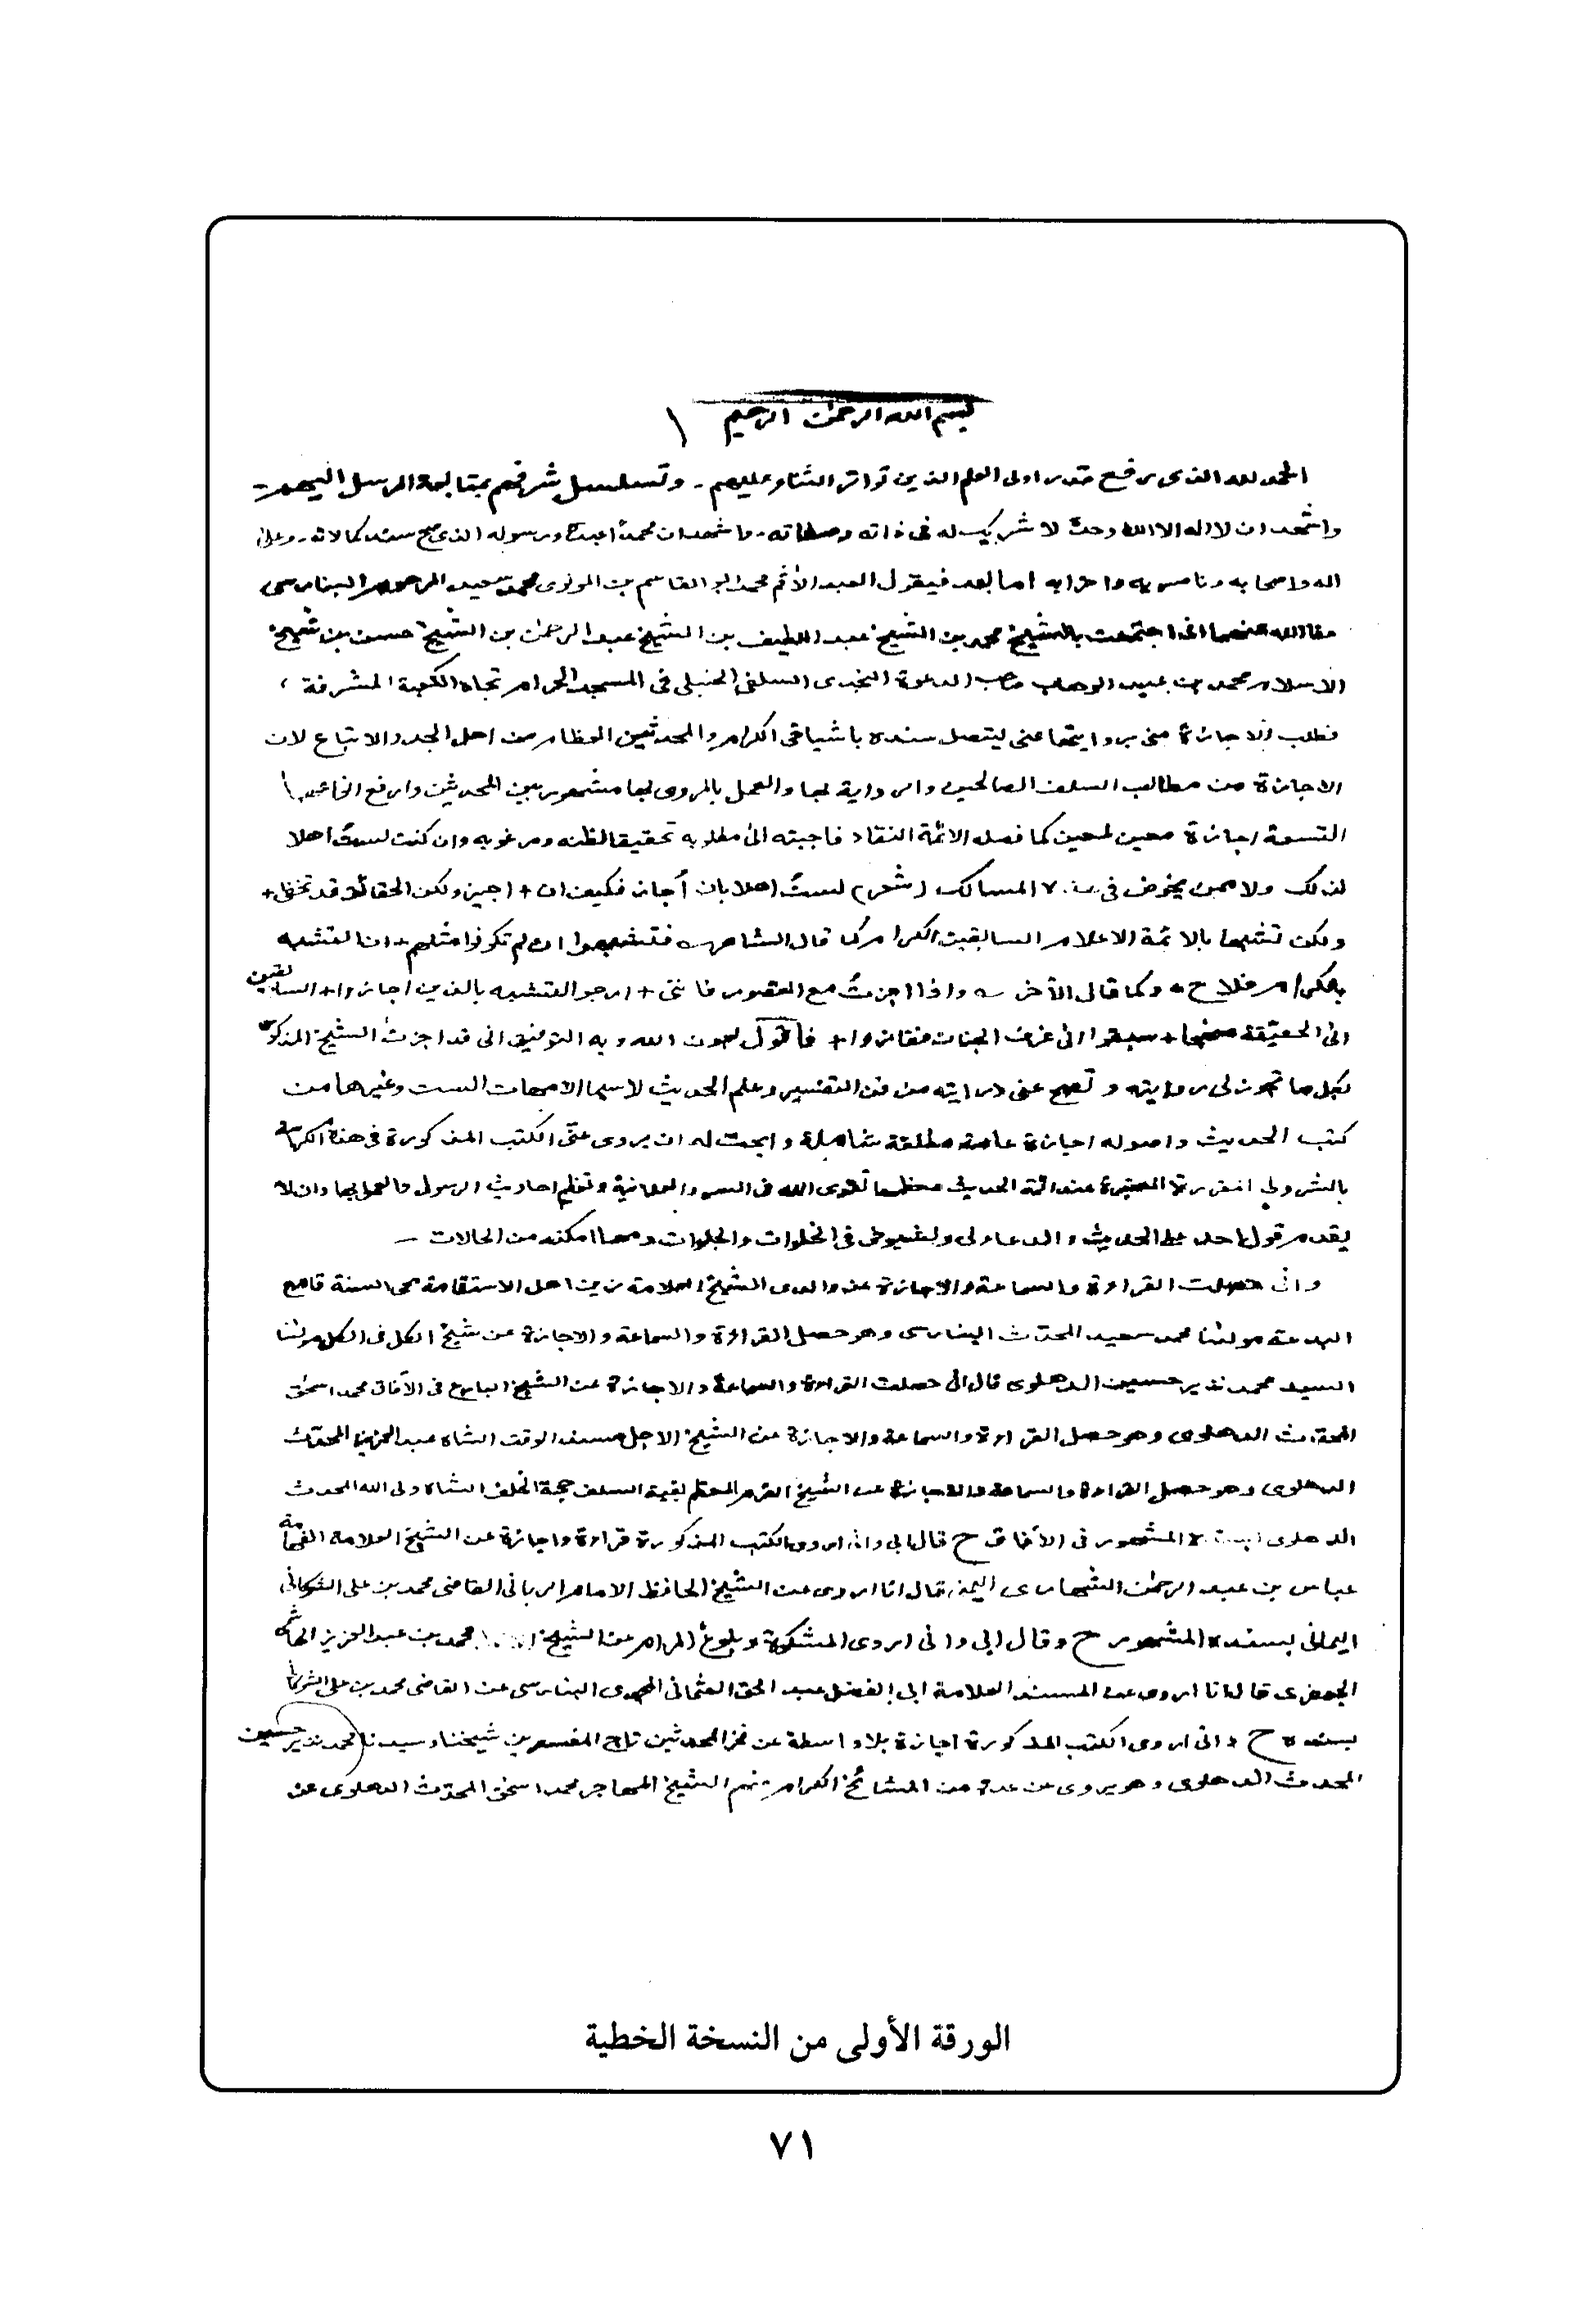 بسم الله الرحمن الرحيم
الحمد لله الذى رفع قدر اولى العلم الذين تواتر الثناء عليهم - وتسلسل شرفهم بمتابعة الرسل اليهم -
واشهد ان لا اله الا الله وحده لا شريك له فى ذاته وصفاته - واشهد ان محمدًا عبده ورسوله الذى صح سند كمالاته - وعلى
اله واصحابه وناصريه واحزابه اما بعد فيقول العبد الأثم محمد ابو القاسم بن المولوى محمد سعيد المرحوم البنارسى
عفا الله عنهما انى اجتمعت بالشيخ محمد بن الشيخ عبد اللطيف بن الشيخ عبد الرحمن بن الشيخ حسن بن شيخ
الاسلام محمد بن عبد الوهاب صاحب الدعوة النجدى السلفى الحنبلى فى المسجد الحرام تجاه الكعبة المشرفة ،
فطلب الاجازة منى بروايتها عنى ليتصل سنده باشياخى الكرام والمحدثين العظام من اهل الجد والاتباع لان
الاجازة من مطالب السلف الصالحين والرواية بها والعمل بالمروى بها مشهور بين المحدثين وارفع انواعها
التسعة اجازة معين لمعين كما فصله الائمة النقاد فاجبته الى مطلوبه تحقيقا لظنه ومرغوبه وان كنت لستُ اهلا
لذلك ولا ممن يخوض فى هذه المسالك (شعر) لستُ اهلا بان أُجاز فكيف ان + اجيز ولكن الحقائق قد تخفى +
ولكن تشبها بالائمة الاعلام السابقين الكرام كما قال الشاعر فتشبهوا ان لم تكونوا مثلهم + ان التشبه
بالكرام فلاح + وكما قال الأخر واذا اجزتُ مع القصور فاننى + ارجو التشبه بالذين اجازوا + السابقين
الى الحقيقة منهجا + سبقوا الى غرف الجنات ففازوا + فأقول بعون الله وبه التوفيق انى قد اجزت الشيخ المذكور
بكل ما تجوز لى روايته وتصح عنى درايته من فن التفسير وعلم الحديث لا سيما الامهات الست وغيرها من
كتب الحديث واصوله اجازة عامة مطلقة شاملة وابحت له ان يروى عنّى الكتب المذكورة فى هذه الكراسة
بالشروط المقررة المعتبرة عند ائمة الحديث معظمها تقوى الله فى السر والعلانية وتعظيم احاديث الرسول والعمل بها وان لا
يقدم قول احد على الحديث والدعاء لى ولشيوخى فى الخلوات والجلوات ومهما امكنه من الحالات -
وانى حصلت القراءة والسماعة والاجازة عن والدى الشيخ العلامة زين اهل الاستقامة محى السنة قامع
البدعة مولٰنا محمد سعيد المحدث البنارسى وهو حصل القراءة والسماعة والاجازة عن شيخ الكل فى الكل مولٰنا
السيد محمد نذير حسين الدهلوى قال انى حصلت القراءة والسماعة والاجازة عن الشيخ البارع فى الأفاق محمد اسحٰق
المحدث الدهلوى وهو حصل القراءة والسماعة والاجازة عن الشيخ الاجل مسند الوقت الشاه عبد العزيز المحدث
الدهلوى وهو حصل القراءة والسماعة والاجازة عن الشيخ القرم المعظم بقية السلف حجة الخلف الشاه ولى الله المحدث
الدهلوى بسنده المشهور فى الأفاق ح قال ابى وانى اروى الكتب المذكورة قراءة واجازة عن الشيخ العلامة الفهامة
عباس بن عبد الرحمٰن الشهارى اليمنى قال انا اروى عن الشيخ الحافظ الامام الربانى القاضى محمد بن على الشوكانى
اليمانى بسنده المشهور ح وقال ابى وانى اروى المشكوة وبلوغ المرام عن الشيخ محمد بن عبد العزيز الهاشمى
الجعفرى قال انا اروى عن المسند العلامة ابى الفضل عبد الحق العثمانى المحمدى البنارسى عن القاضى محمد بن على الشوكانى
بسنده ح وانى اروى الكتب المذكورة اجازة بلا واسطة عن فخر المحدثين تاج المفسرين شيخنا وسيدنا محمد نذير حسين
المحدث الدهلوى وهو يروى عن عدة من المشائخ الكرام منهم الشيخ المهاجر محمد اسحٰق المحدث الدهلوى عن
الورقة الأولى من النسخة الخطية
٧١